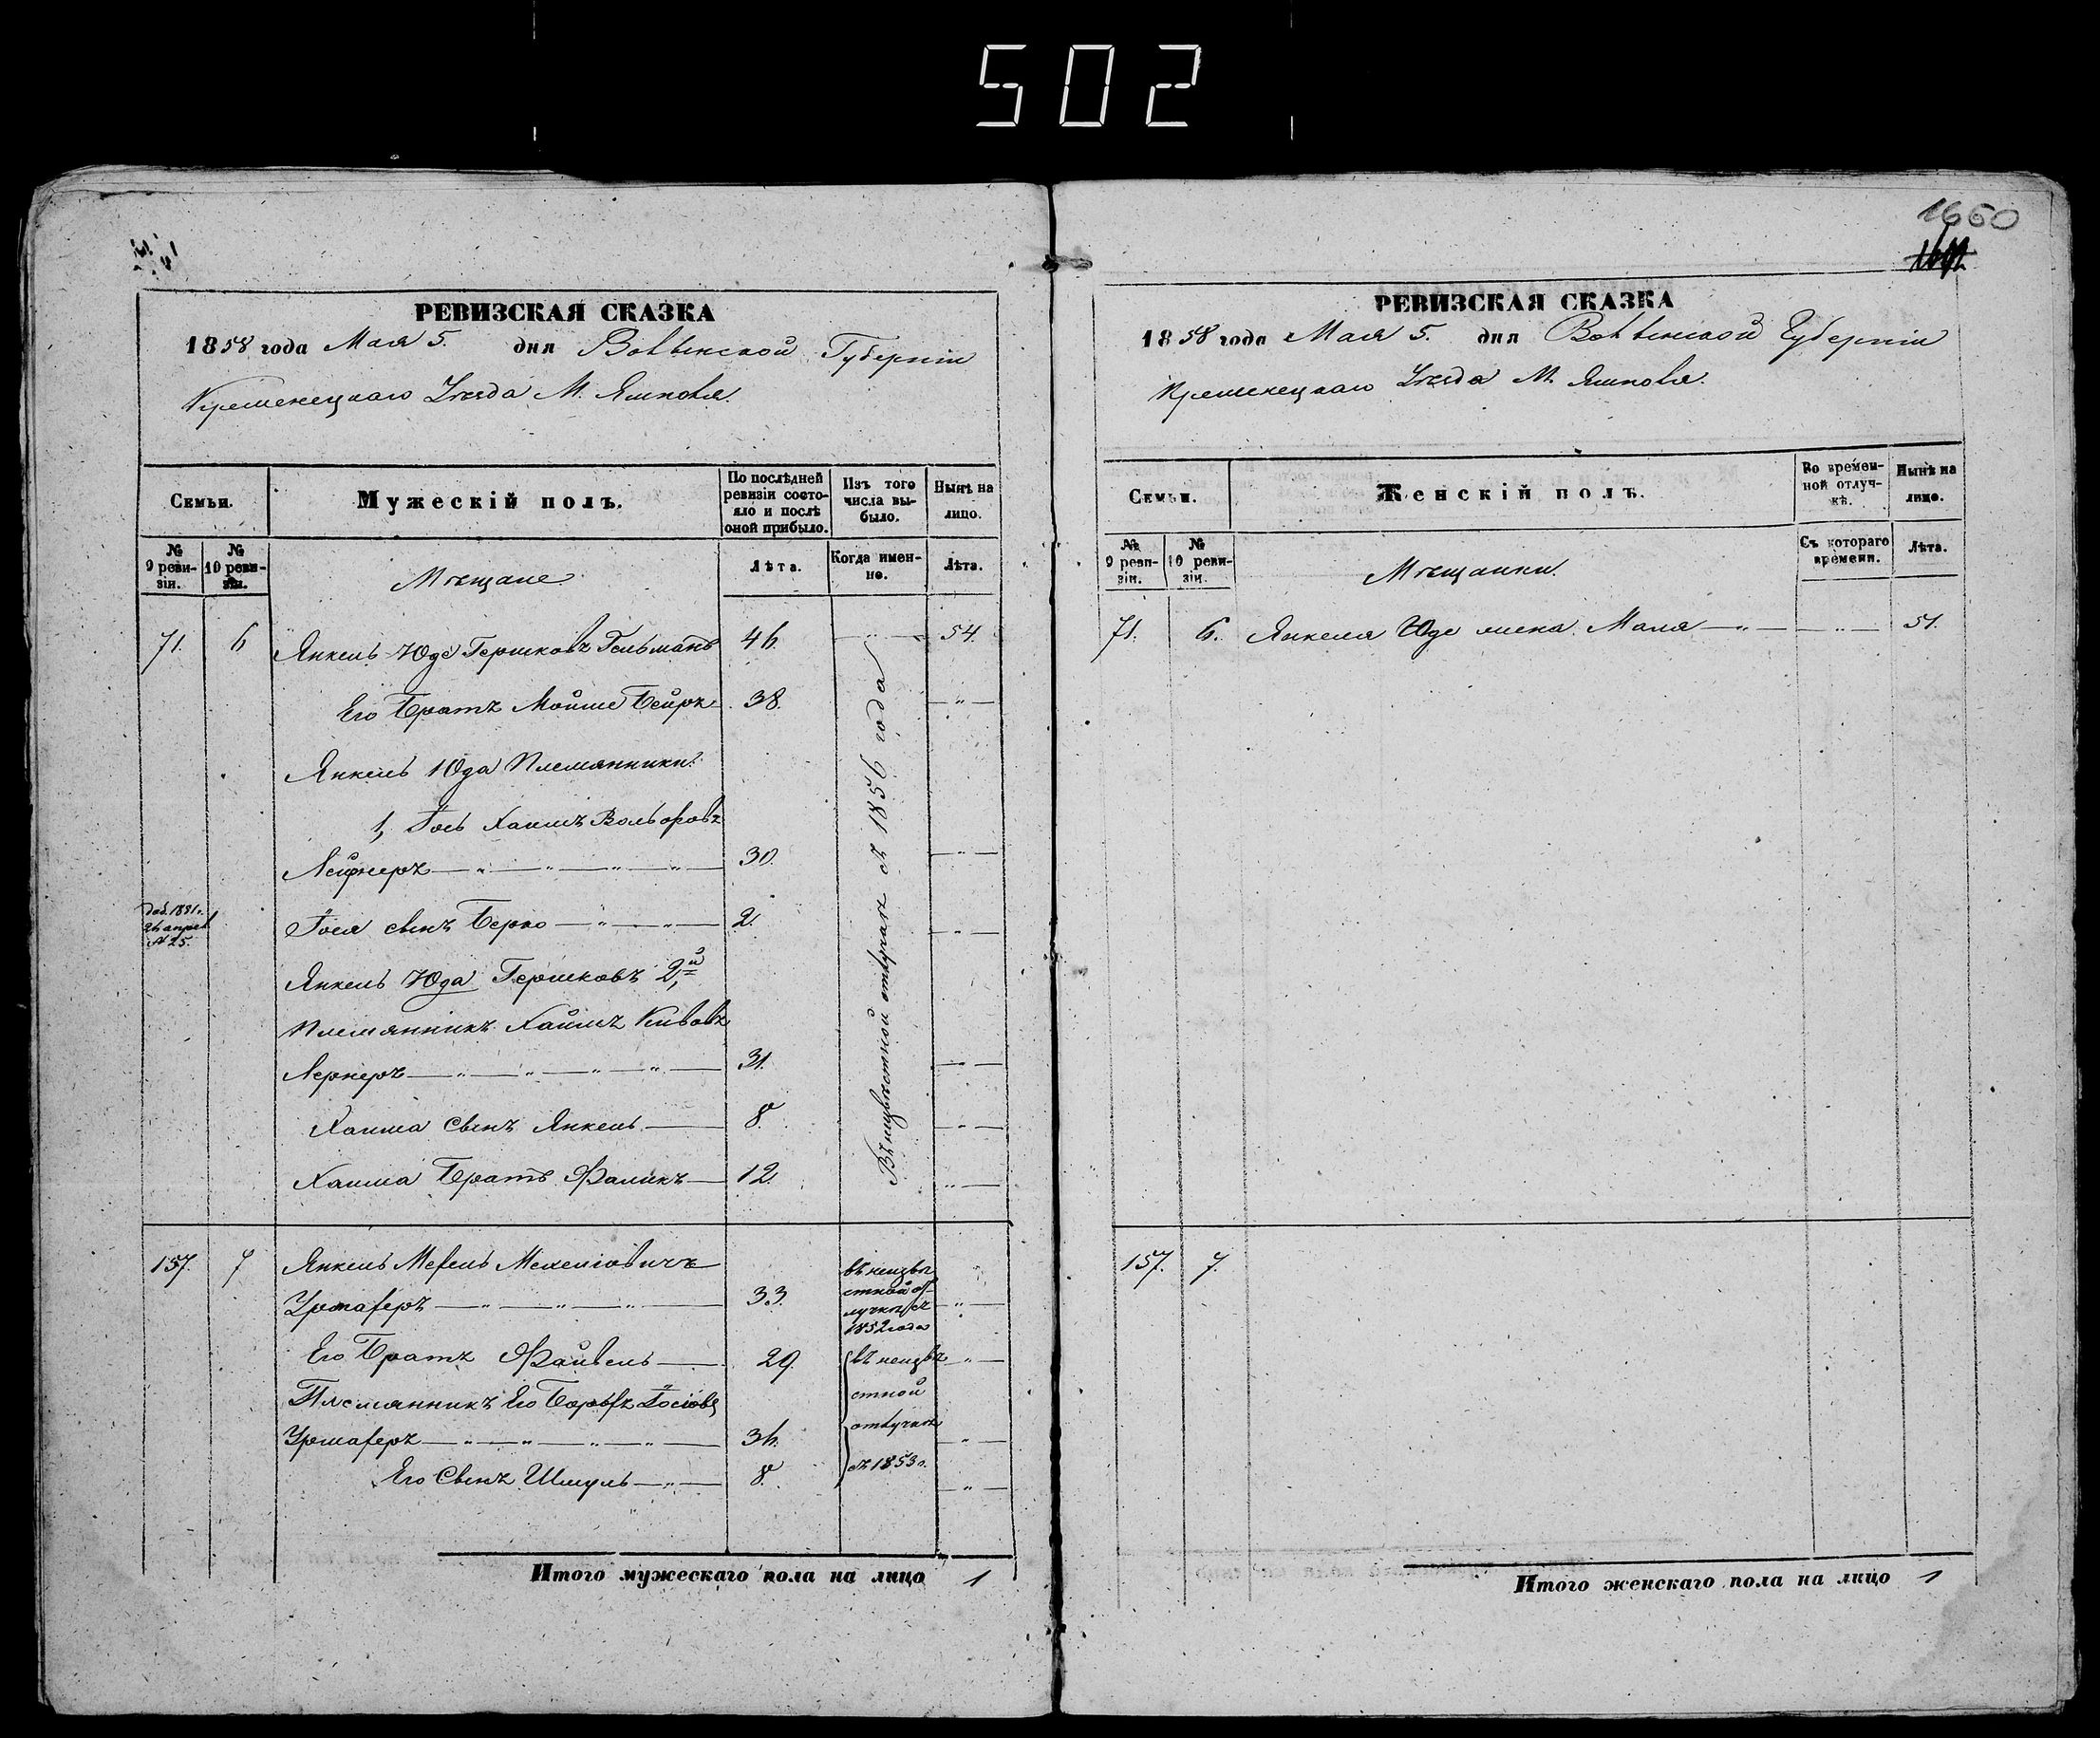 502
1660
РЕВИЗСКАЯ СКАЗКА
1858 года Мая 5. дня Волынской Губерніи
Кременецкаго Уезда М. Ямполя.
Семьи.
Мужескій полъ.
По послѣдней ревизіи состояло и послѣ оной прибыло.
Изъ того числа выбыло.
Нынѣ на лицо.
№ 9 ревизіи.
№ 10 ревизіи.
Мѣщане
Лѣта.
Когда именно.
Лѣта.
71. 6 Янкель Юде Гершковъ Гельманъ 46. — „ — 54.
Его Братъ Мойше Бейръ 38. — „ —
Янкель Юда Племянники:
1, Іось Хаимъ Вольфовъ
30. — „ —
Іося сынъ Берко — „ — „ — 2. — „ —
Янкель Юда Гершковъ 2й
Племянникъ Хаимъ Кивовъ
Лернеръ — „ — „ — „ — „ — 31. — „ —
Хаима сынъ Янкель — 8. — „ —
Хаима Братъ Фаликъ — 12. — „ —
Въ неизвѣстной отлучкѣ съ 1856 года
157. 7 Янкель Мехелъ Мехелiовичъ
33. — „ —
въ неизвѣстной отлучкѣ съ 1852 года
Его Братъ Файвель — 29. — „ —
Племянникъ Его
36. — „ —
Его Сынъ Шмуль — „ — 8. — „ —
въ неизвѣстной отлучкѣ съ 1853 г.
Итого мужескаго пола на лицо 1
РЕВИЗСКАЯ СКАЗКА
1858 года Мая 5. дня Волынской Губерніи
Кременецкаго Уезда М. Ямполя.
Семьи.
Женскій полъ.
Во временной отлучкѣ.
Нынѣ на лицо.
№ 9 ревизіи.
№ 10 ревизіи.
Мѣщанки.
Съ котораго времени.
Лѣта.
71. 6. Янкеля Юде жена Маля — „ — — „ — 51.
157. 7.
Итого женскаго пола на лицо 1